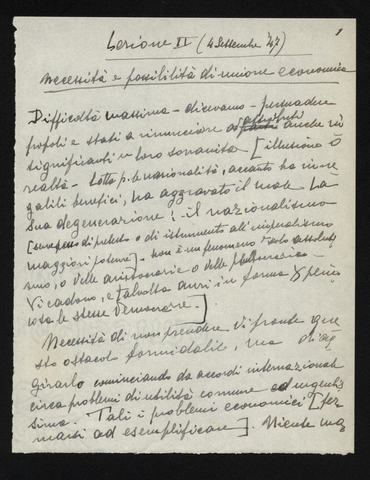 1
Lezione II (4 Settembre '47)
Necessità e possibilità di unione economica
Difficoltà massima - dicevamo - persuadere
popoli e stati a rinunciare ad attributi anche in
significanti di loro sovranità [illusione o
realtà - Lotta p. le nazionalità, accanto ha inne
gabili benefici, ha aggravato il male. La
sua degenerazione: il nazionalismo
di pretesto o di istrumento all'imperialismo
maggiori potenze] - non è un fenomeno
smo, o delle aristocrazie o delle plutocrazie -
Vi cadono, e talvolta anzi in forma + peri
colosa le stesse democrazie.]
Necessità di non prendere di fronte que
sto ostacolo formidabile, ma di ag
girarlo cominciando da accordi internazionali
circa problemi di utilità comune ed urgentis
sima. Tali i problemi economici [fer
marsi ad esemplificare]. Niente